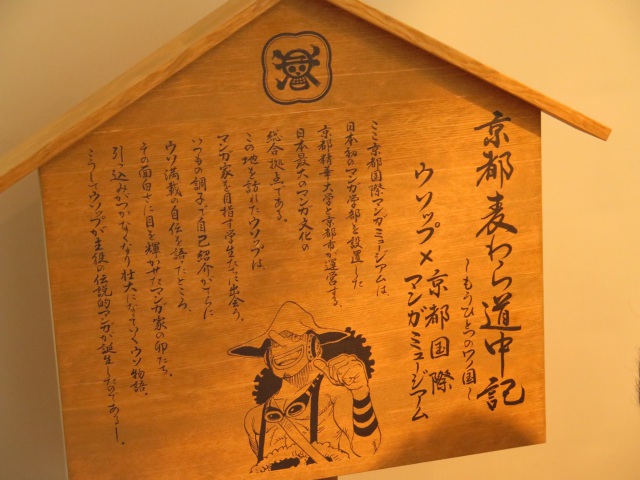 京都麦わら道中記
～もうひとつのワノ国～
ウソップ×京都国際
マンガミュージアム
ここ京都国際マンガミュージアムは、
日本初のマンガ学部を設置した
京都精華大学と京都市が運営する、
日本最大のマンガ文化の
総合拠点である。
この地を訪れたウソップは、
マンガ家を目指す学生たちと出会う。
いつもの調子で自己紹介がてらに
ウソ満載の自伝を語ったところ、
その面白さに目を輝かせたマンガ家の卵たち。
引っ込みがつかなくなり壮大になっていくウソ物語。
こうしてウソップが主役の伝説的マンガが誕生したのであるーし。